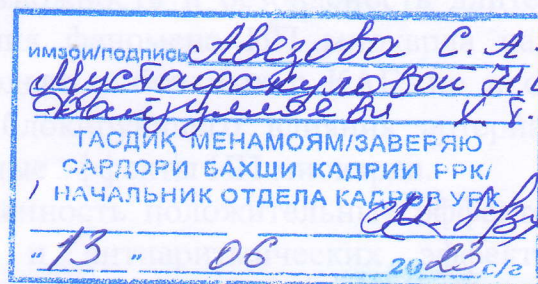 имзои/подпись Авезова С. А.
Мустафакуловой Н.
Х. Г.
ТАСДИҚ МЕНАМОЯМ/ЗАВЕРЯЮ
САРДОРИ БАХШИ КАДРИИ РРК/
НАЧАЛЬНИК ОТДЕЛА КАДРОВ УРК
"13" 06 2023 с/г